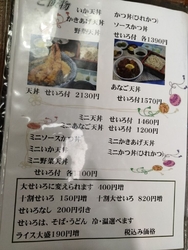 いか天丼
かきあげ丼
野菜天丼
かつ丼(ひれかつ)
ソースかつ丼
せいろ付 各1390円
天丼 せいろ付 2130円
あなご天丼
せいろ付1570円
ミニ天丼 せいろ付 1460円
ミニあなご天丼 せいろ付 1200円
ミニソースかつ丼
ミニいか天丼
ミニ野菜天丼
ミニかきあげ天丼
ミニかつ丼(ひれかつ)
大せいろに変えられます 400円増
十割せいろ 150円増 十割大せいろ 820円増
せいろなし 200円引き
せいろは、そば・うどん 冷・温選べます
ライス大盛190円増 税込み価格